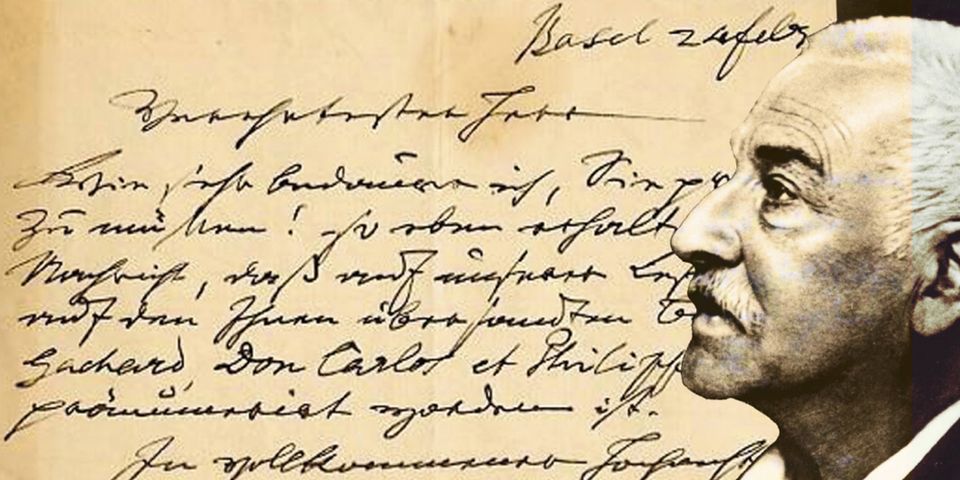 Basel 24 Feb
Verehrtester Herr
Wie sehr bedaure ich, Sie
zu müssen! so eben erhalt
Nachricht, daß auf unserer Les
auf den Ihnen übersandten
Gachard, Don Carlos et Philipp
pränumerirt worden ist.
In vollkommener Hochacht